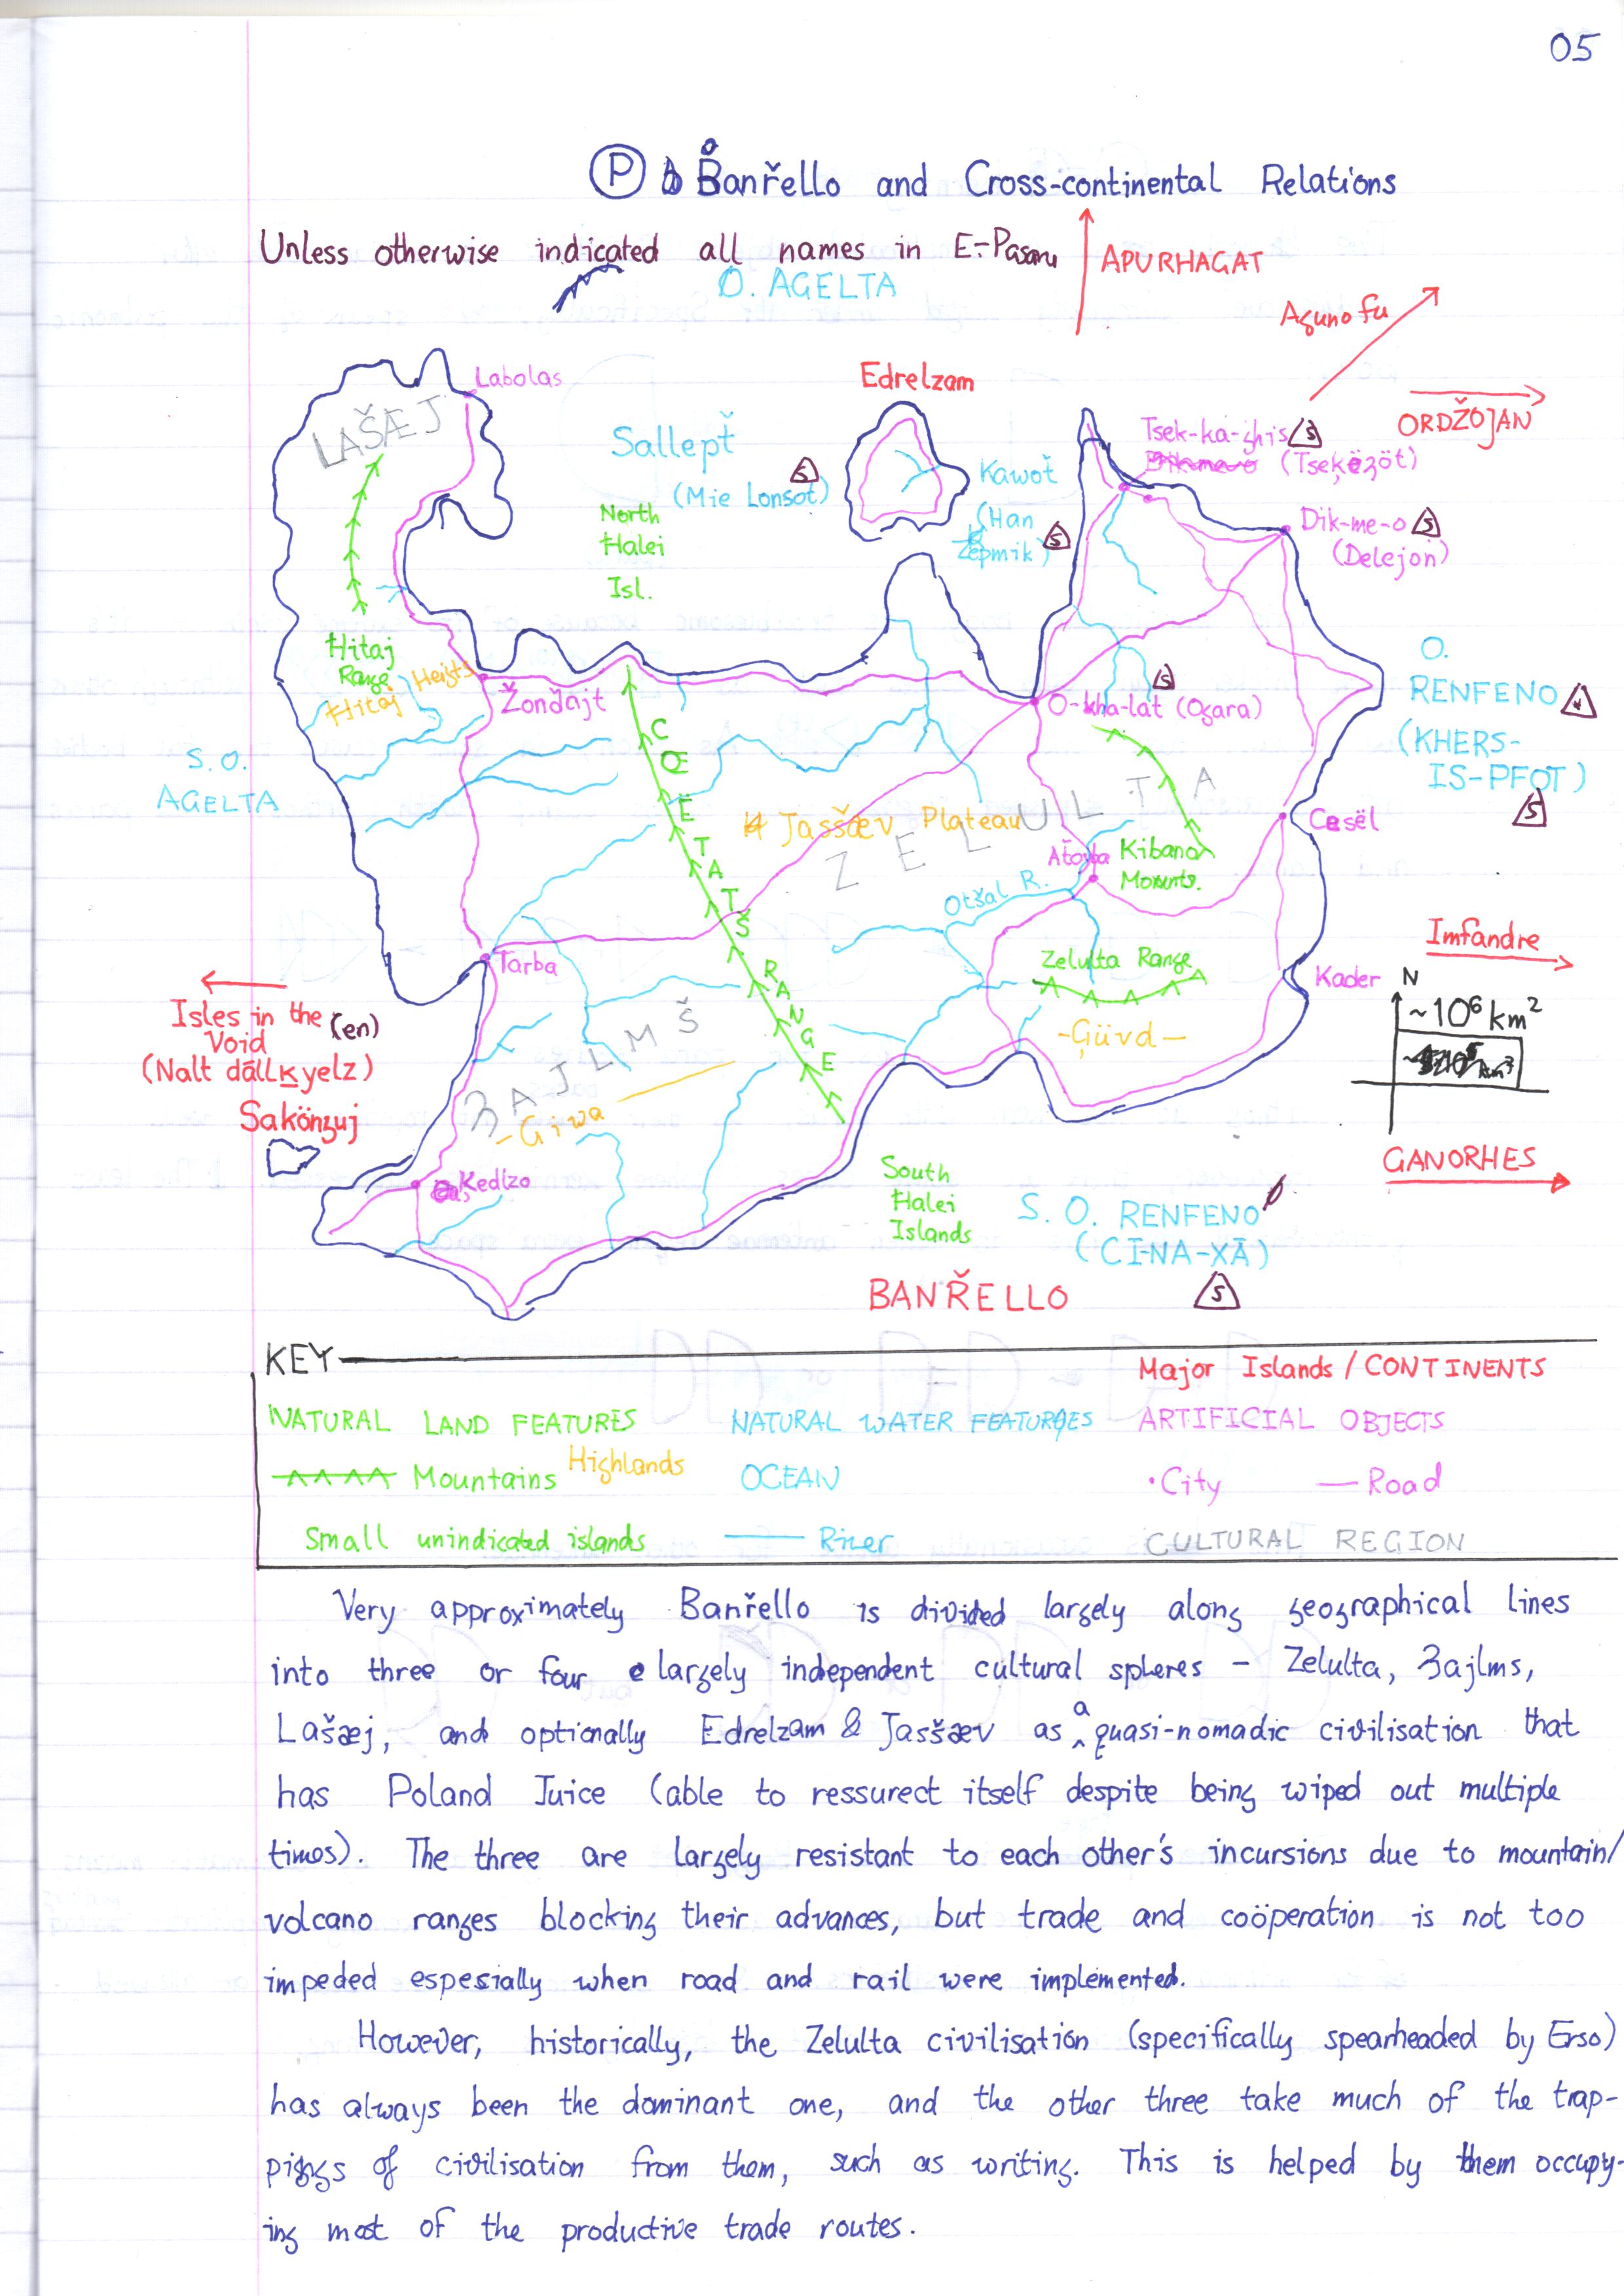 05
P Banřello and Cross-continental Relations
Unless otherwise indicated all names in E-Pasaru
O. AGELTA
APURHAGAT
Agunofu
ORDŽOJAN
Labolas
LAŠÆJ
Edrelzam
Sallept̆
(Mie Lonsot)
S
North
Halei
Isl.
Kawot̆
(Han
Zepmik)
S
Tsek-ka-ghis S
(Tseķëzöt)
Dik-me-o S
(Delejon)
Hitaj
Range
Hitaj Heights
Žondajt
O-kha-lat (Ogara)
S
O.
RENFENO
(KHERS-
IS-PFOT)
S
S. O.
AGELTA
CŒETATŠ RANGE
Jasšæv Plateau
ZELULTA
Kibano
Mounts.
Cesël
Otšal R.
Tarba
Zelulta Range
Kader
-Güvd-
Imfandre
N
~10⁶ km²
Isles in the (en)
Void
(Nalt dāllkyelz)
Sakönzuj
ƷAJLMŠ
-Giwa
Kedlzo
GANORHES
South
Halei
Islands
S. O. RENFENO
(CĪ-NA-XĀ)
S
BANŘELLO
KEY
Major Islands / CONTINENTS
NATURAL LAND FEATURES NATURAL WATER FEATURES ARTIFICIAL OBJECTS
Mountains Highlands OCEAN •City — Road
Small unindicated islands — River CULTURAL REGION
Very approximately Banřello is divided largely along geographical lines
into three or four largely independent cultural spheres - Zelulta, Ʒajlms,
Lašæj, and optionally Edrelzam & Jasšæv as a quasi-nomadic civilisation that
has Poland Juice (able to ressurect itself despite being wiped out multiple
times). The three are largely resistant to each other's incursions due to mountain/
volcano ranges blocking their advances, but trade and coöperation is not too
impeded espesially when road and rail were implemented.
However, historically, the Zelulta civilisation (specifically spearheaded by Erso)
has always been the dominant one, and the other three take much of the trap-
pings of civilisation from them, such as writing. This is helped by them occupy-
ing most of the productive trade routes.